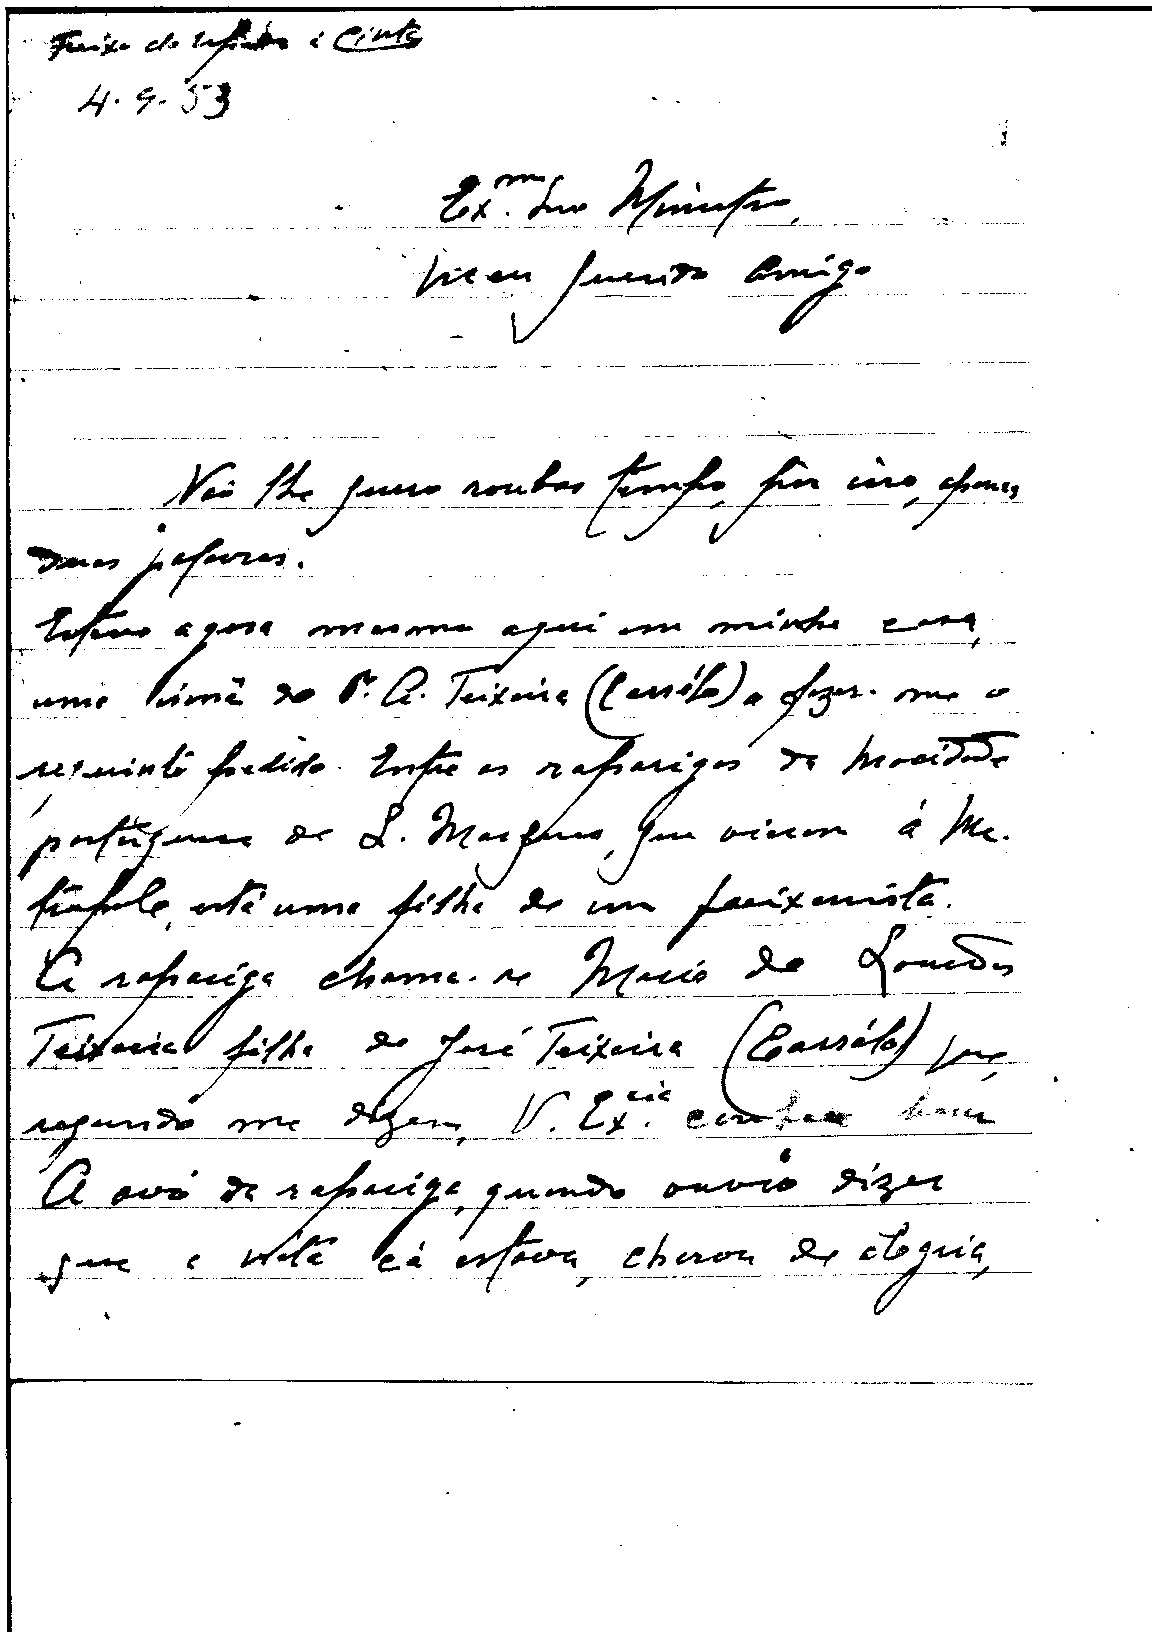 Freixo de Espada à Cinta
4.9.53
Ex.mo Snr Ministro,
Meu querido Amigo
Não lhe quero roubar tempo, por isso, apenas
duas palavras.
Esteve agora mesmo aqui em minha casa,
uma irmã do P. A. Teixeira (Carrélo) a fazer-me o
seguinte pedido. Entre as raparigas da Mocidade
portuguesa de L. Marques, que vieram á Me-
trópole, está uma filha de um freixenista.
A rapariga chama-se Maria de Lourdes
Teixeira filha de José Teixeira (Carrélo) que,
segundo me dizem, V. Ex.cia conhece bem
A avó da rapariga, quando ouviu dizer
que a neta cá estava, chorou de alegria,